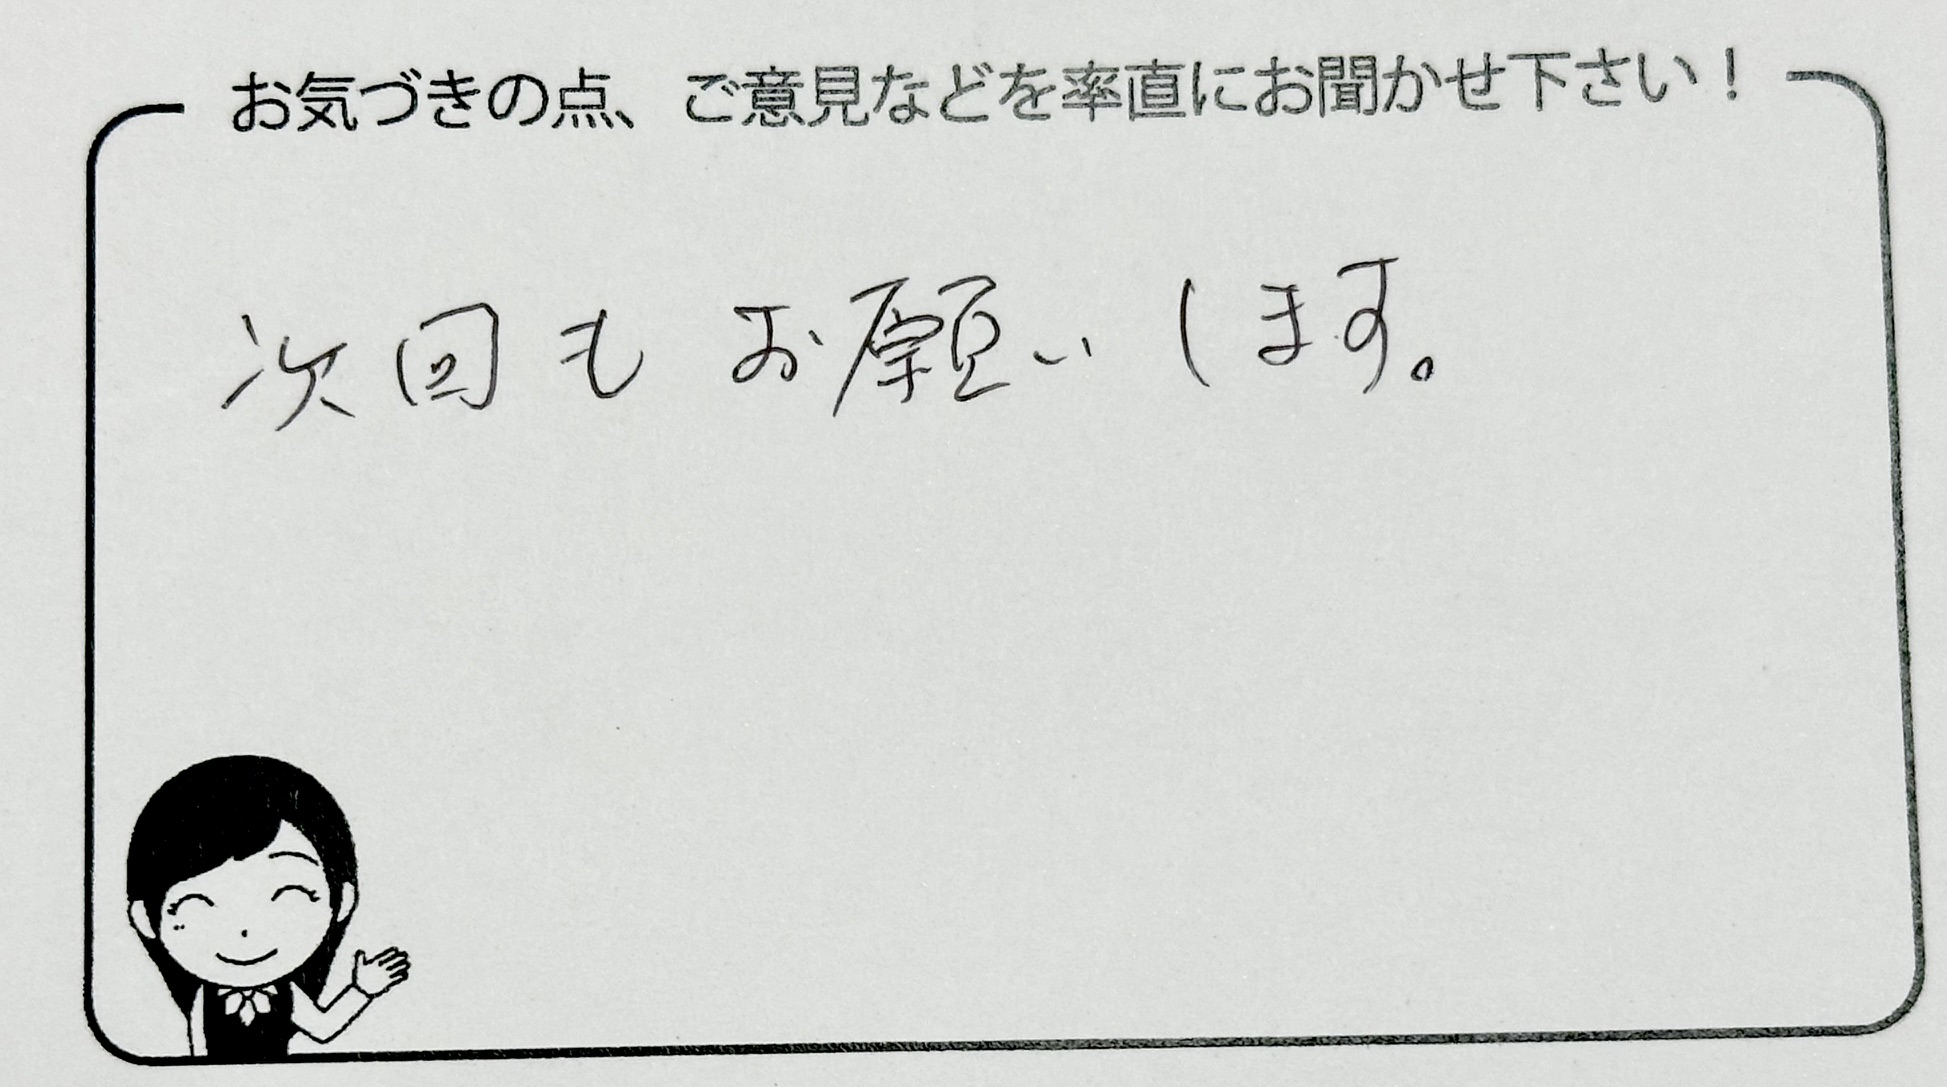 お気づきの点、ご意見などを率直にお聞かせ下さい！
次回もお願いします。